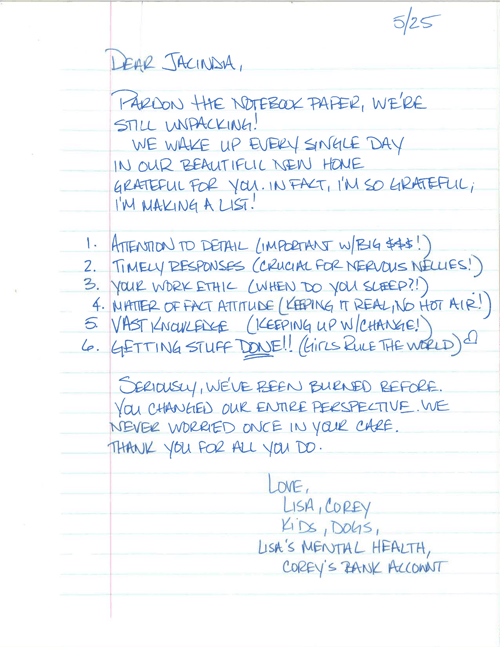 5/25
DEAR JACINDA,
PARDON THE NOTEBOOK PAPER, WE'RE
STILL UNPACKING!
WE WAKE UP EVERY SINGLE DAY
IN OUR BEAUTIFUL NEW HOME
GRATEFUL FOR YOU. IN FACT, I'M SO GRATEFUL,
I'M MAKING A LIST!
1. ATTENTION TO DETAIL (IMPORTANT W/BIG $$$!)
2. TIMELY RESPONSES (CRUCIAL FOR NERVOUS NELLIES!)
3. YOUR WORK ETHIC (WHEN DO YOU SLEEP?!)
4. MATTER OF FACT ATTITUDE (KEEPING IT REAL, NO HOT AIR!)
5. VAST KNOWLEDGE (KEEPING UP W/CHANGE!)
6. GETTING STUFF DONE!! (GIRLS RULE THE WORLD)
SERIOUSLY, WE'VE BEEN BURNED BEFORE.
YOU CHANGED OUR ENTIRE PERSPECTIVE. WE
NEVER WORRIED ONCE IN YOUR CARE.
THANK YOU FOR ALL YOU DO.
LOVE,
LISA, COREY
KIDS, DOGS,
LISA'S MENTAL HEALTH,
COREY'S BANK ACCOUNT